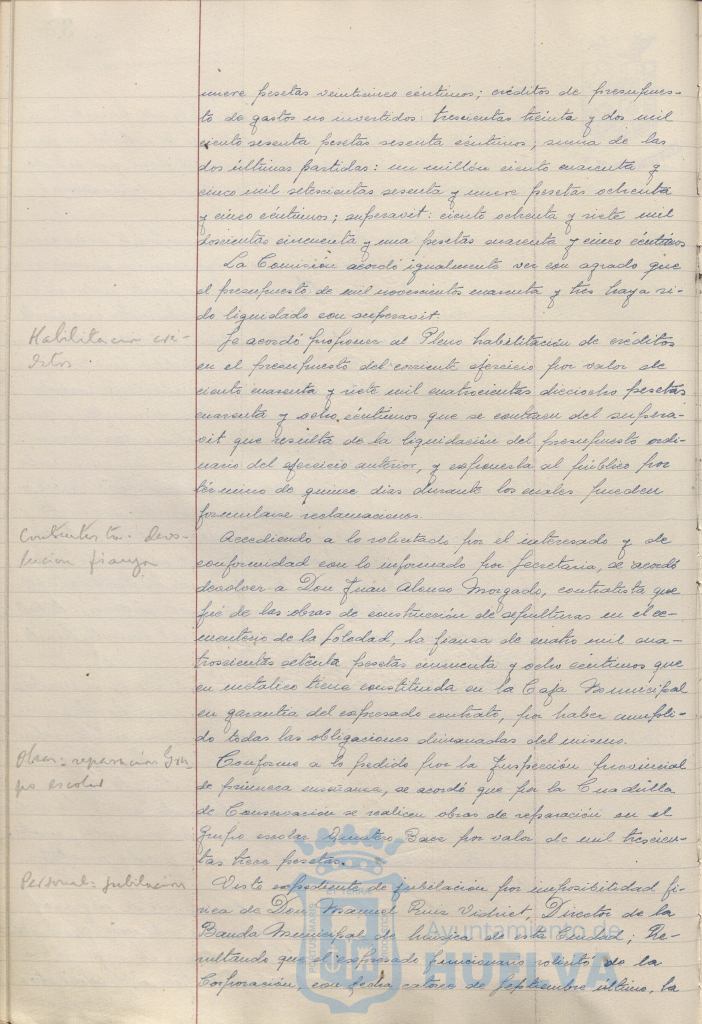 nueve pesetas veinticinco céntimos; créditos de presupues-
to de gastos no invertidos: trescientas treinta y dos mil
ciento sesenta pesetas sesenta céntimos; suma de las
dos últimas partidas: un millón ciento cuarenta y
cinco mil setecientas sesenta y nueve pesetas ochenta
y cinco céntimos; superavit: ciento ochenta y siete mil
doscientas cincuenta y una pesetas cuarenta y cinco céntimos
La Comisión acordó igualmente ver con agrado que
el presupuesto de mil novecientos cuarenta y tres haya si-
do liquidado con superavit.
Habilitacion cré-
ditos
Se acordó proponer al Pleno habilitación de créditos
en el presupuesto del corriente ejercicio por valor de
ciento cuarenta y siete mil cuatrocientas dieciocho pesetas
cuarenta y ocho céntimos que se contraen del supera-
vit que resulta de la liquidación del presupuesto ordi-
nario del ejercicio anterior, y exponerla al público por
término de quince dias durante los cuales pueden
formularse reclamaciones.
Contratista. devo-
lucion fianza
Accediendo a lo solicitado por el interesado y de
conformidad con lo informado por Secretaria, se acordó
devolver a Don Juan Alonso Morgado, contratista que
fué de las obras de construcción de sepulturas en el ce-
menterio de la Soledad, la fianza de cuatro mil cua-
troscientas setenta pesetas cincuenta y ocho céntimos que
en metálico tiene constituida en la Caja Municipal
en garantia del expresado contrato, por haber cumpli-
do todas las obligaciones dimanadas del mismo.
Obras: reparación Gru-
po escolar
Conforme a lo pedido por la Inspección provincial
de primera enseñanza, se acordó que por la Cuadrilla
de Conservación se realicen obras de reparación en el
grupo escolar por valor de mil trescien-
tas trece pesetas.
Personal: jubilacion
Visto expediente de jubilación por imposibilidad fí-
sica de Don Manuel Ruiz Vidriet, Director de la
Banda Municipal de música de esta Ciudad; Re-
sultando que el expresado funcionario solicitó de la
Corporación, con fecha catorce de Septiembre último, la
Ayuntamiento de
HUELVA